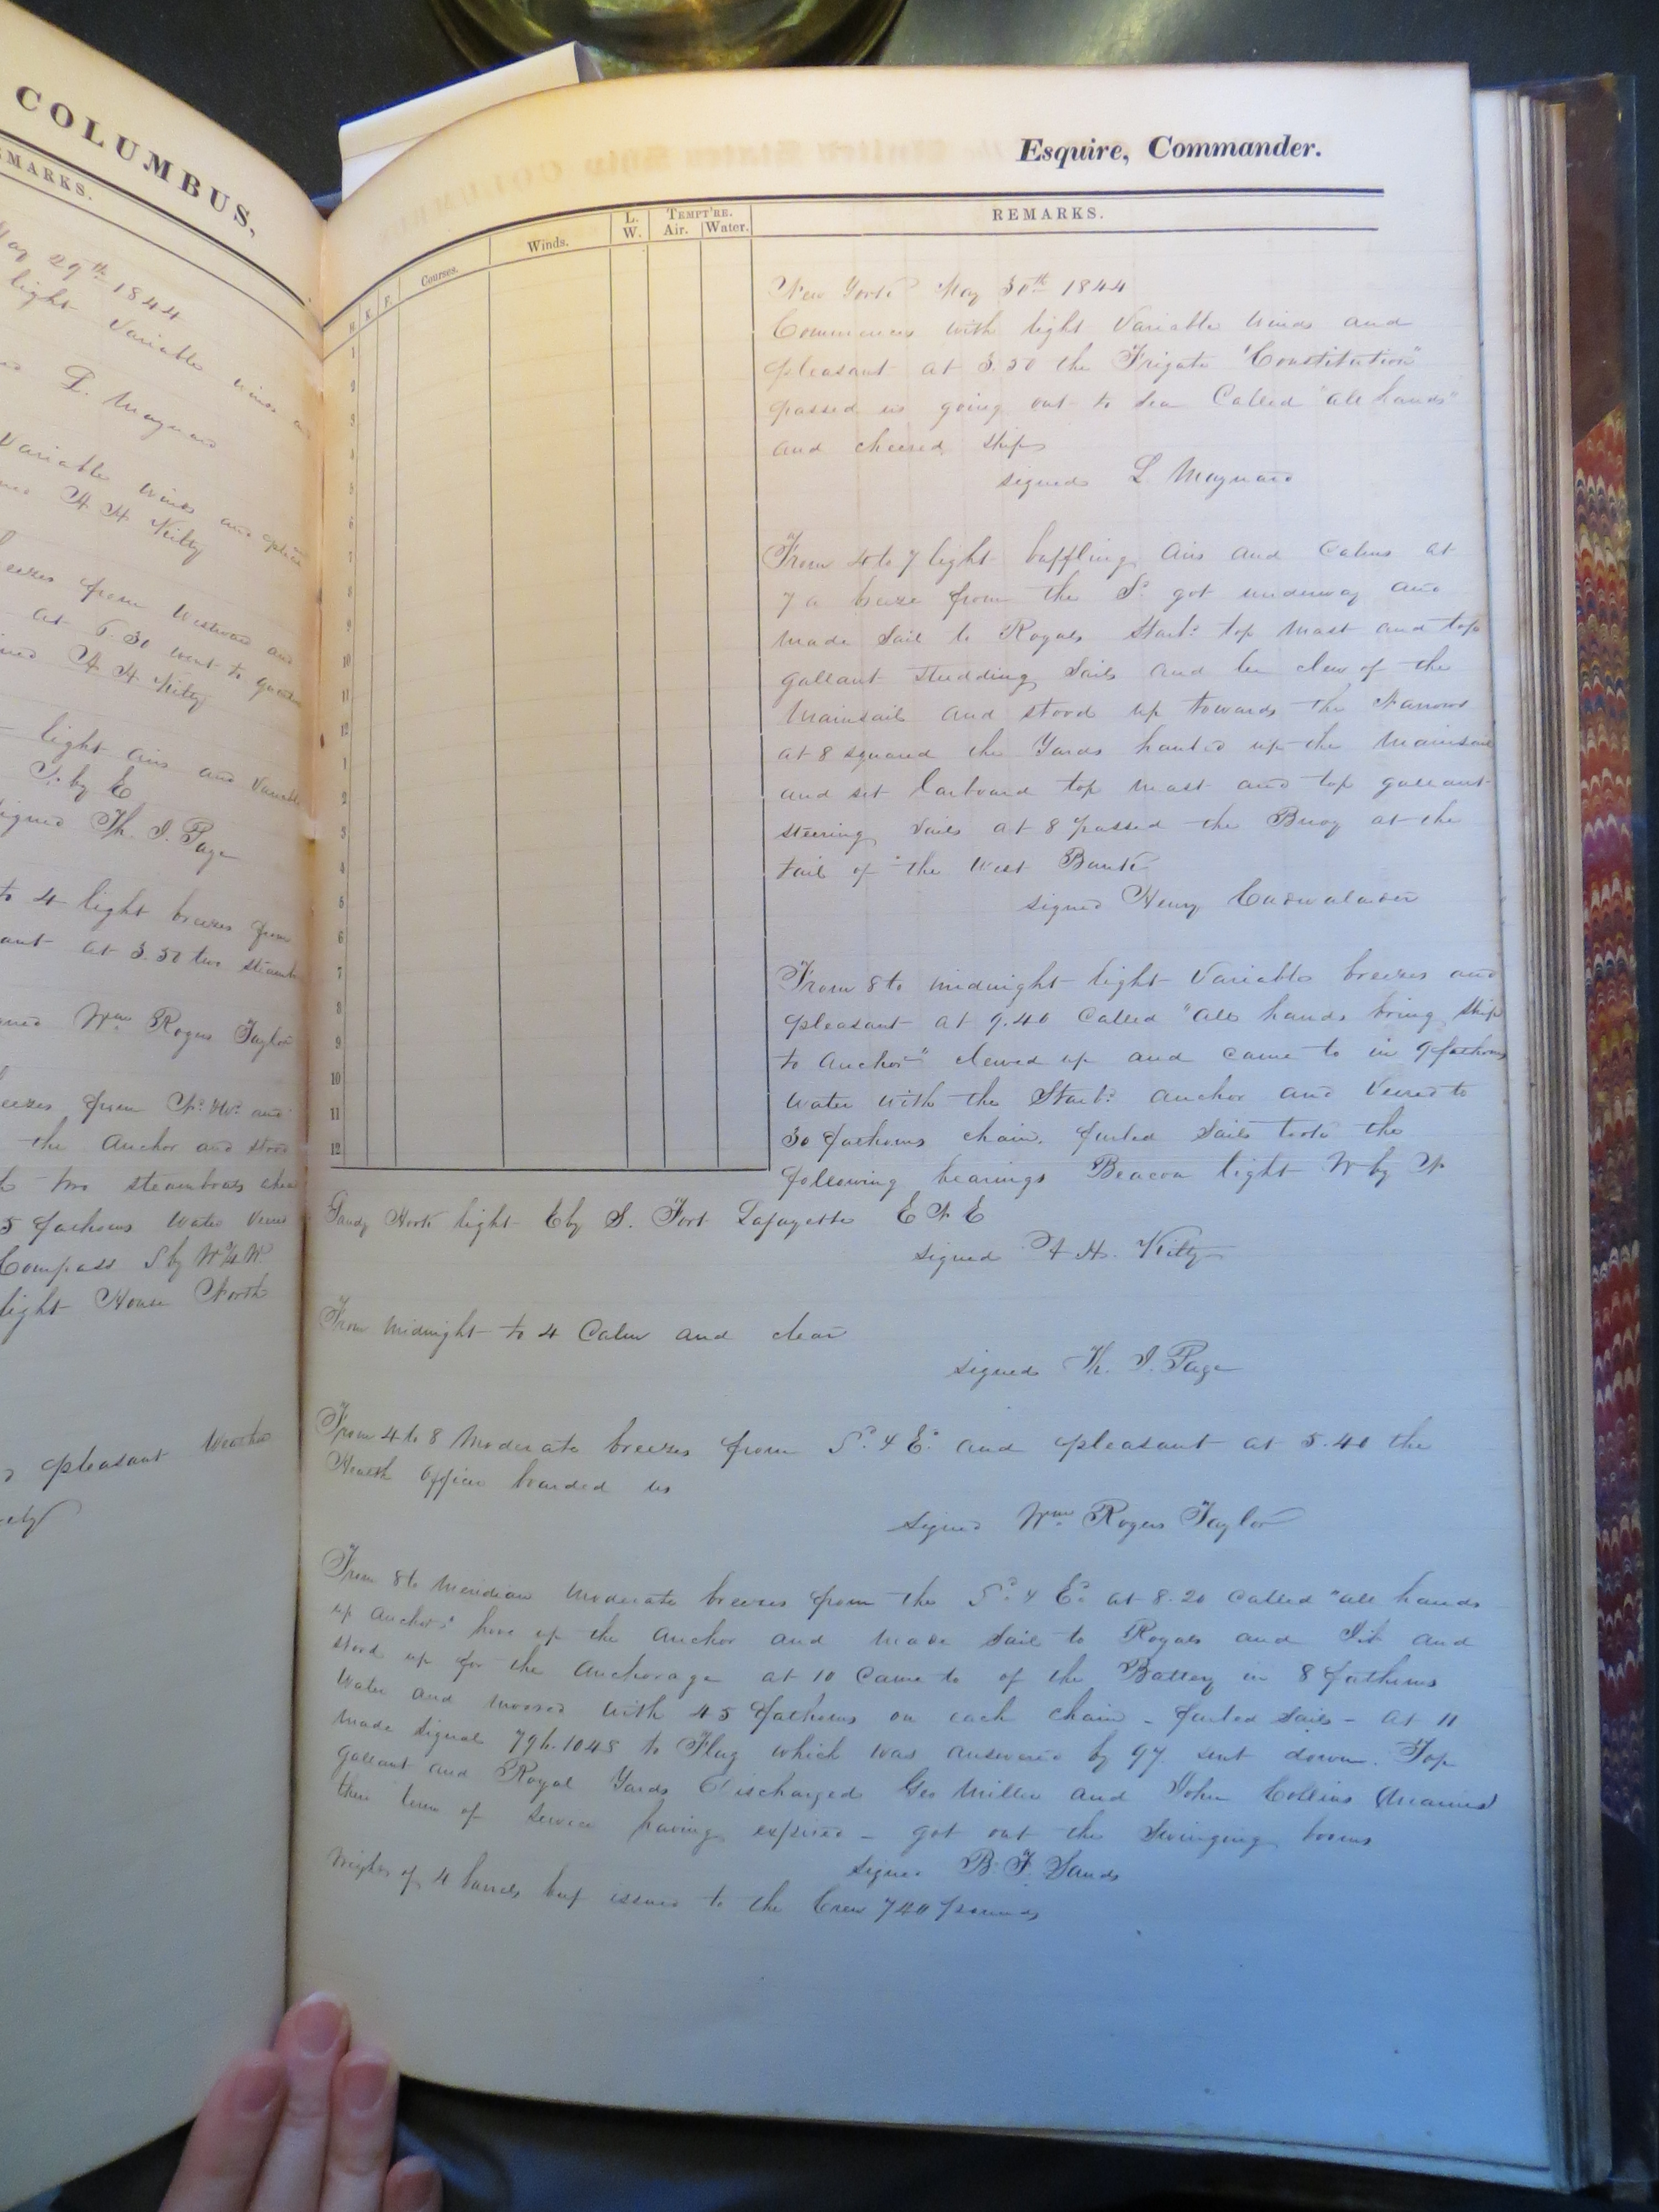 COLUMBUS,
MARKS.
May 29th 1844
light Variable winds an
L. Maynard
Variable winds and pleas
H H Kitty
from Westward and
at 6.30 went to quar
H H Kitty
light airs and Variable
by E
signed Th. J. Page
to 4 light breezes from
ant at 3.50 two steamb
Wm Rogers Taylor
eezes from No. Wd. and
the Anchor and stood
two steamboats
5 fathoms water veered
Compass S by W ¼ W
light House North
pleasant Weather
Esquire, Commander.
H. K. F. Courses. Winds. L. W. TEMPT'RE. Air. Water. REMARKS.
1
2
3
4
5
6
7
8
9
10
11
12
1
2
3
4
5
6
7
8
9
10
11
12
New York May 30th 1844
Commences with light Variable winds and
pleasant at 3.50 the Frigate "Constitution"
passed us going out to sea Called "all hands"
and cheered ship
signed L Maynard
From 4 to 7 light baffling airs and Calms at
7 a breeze from the Sd. got underway and
made Sail to Royals Starb: top mast and top
gallant Studding Sails and lee clew of the
Mainsail and stood up towards the Narrows
at 8 squared the Yards hauled up the Mainsail
and set Larboard top mast and top gallant
steering sails at 8 passed the Buoy at the
tail of the West Bank
signed Henry Cadwalader
From 8 to midnight light Variable breezes and
pleasant at 9.40 Called "all hands bring ship
to anchor" clewed up and came to in 9 fathoms
water with the Starb: anchor and Veered to
30 fathoms chain. furled Sails took the
following bearings Beacon light W by N
Sandy Hook light E by S. Fort Lafayette E N E
signed H H. Kitty
From midnight to 4 Calm and clear
signed Th. J. Page
From 4 to 8 Moderate breezes from Sd. & Ed. and pleasant at 5.40 the
Health Officer boarded us
signed Wm Rogers Taylor
From 8 to Meridian Moderate breezes from the Sd. & Ed. at 8.20 called "all hands
up anchor" hove up the anchor and made Sail to Royals and Jib and
stood up for the Anchorage at 10 Came to of the Battery in 8 fathoms
Water and moored with 45 fathoms on each chain - furled Sails - at 11
made Signal 796.1048 to Flag which was answered by 97. sent down Top
gallant and Royal Yards Discharged Geo Miller and John Collins (Marines)
their term of Service having expired - got out the Swinging booms
signed B. F. Sands
Weight of 4 barrels beef issued to the Crew 740 pounds